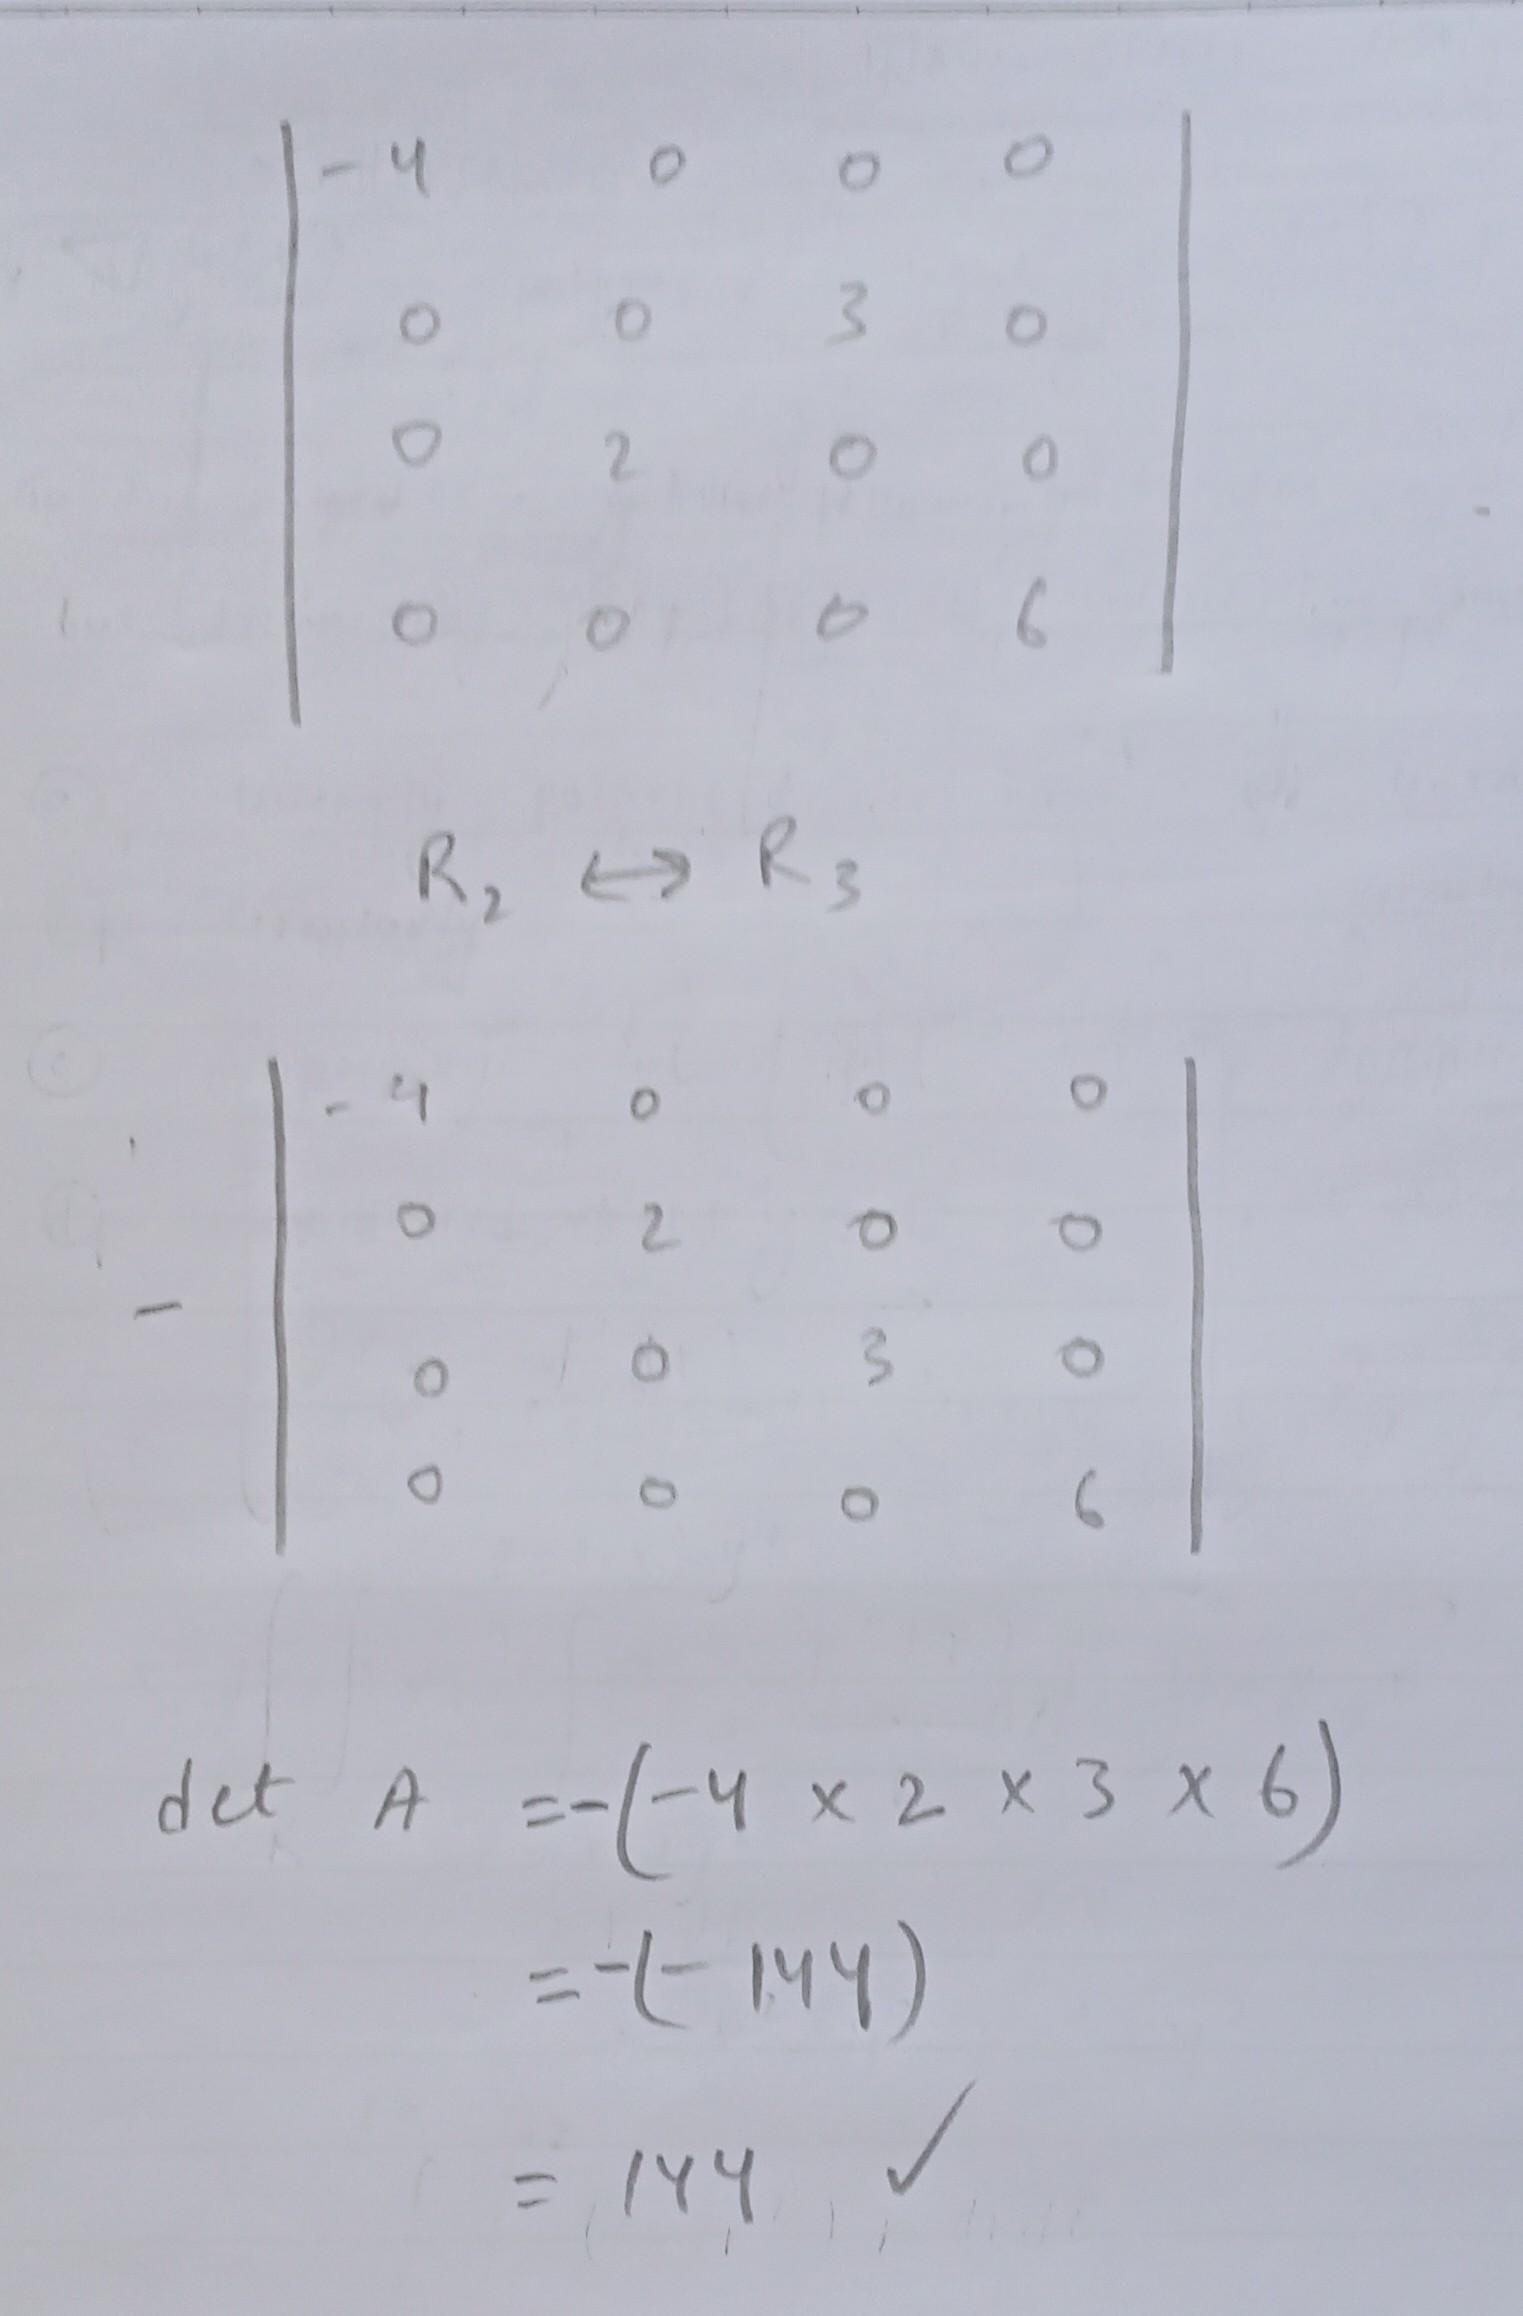 | -4 0 0 0 |
| 0 0 3 0 |
| 0 2 0 0 |
| 0 0 0 6 |
R₂ ↔ R₃
| -4 0 0 0 |
| 0 2 0 0 |
- | 0 0 3 0 |
| 0 0 0 6 |
det A = -(-4 × 2 × 3 × 6)
= -(-144)
= 144 ✓